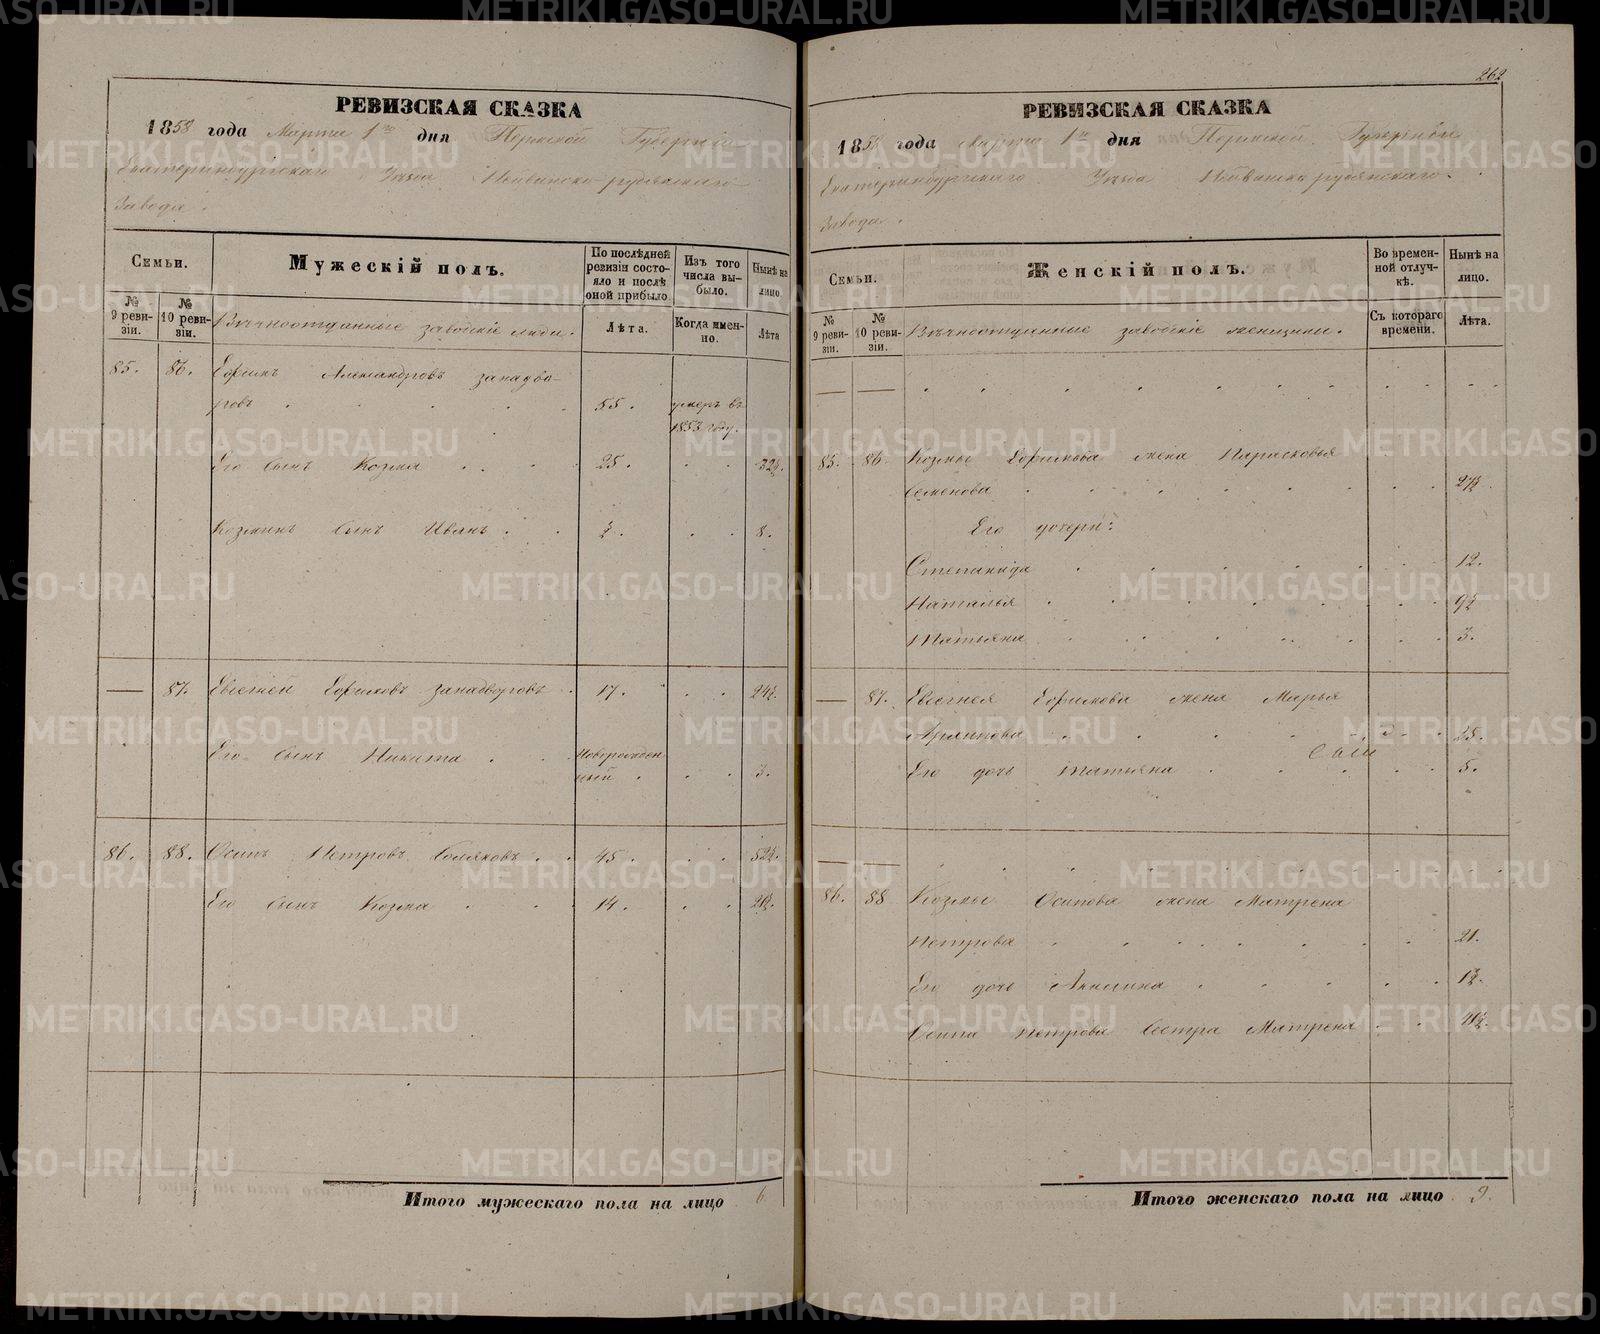 РЕВИЗСКАЯ СКАЗКА
1858 года Марта 1го дня Пермской Губернiи
Екатеринбургскаго Уѣзда Нейвинско-рудянскаго
Завода.
Семьи.
Мужескiй полъ.
По послѣдней ревизiи состояло и послѣ оной прибыло
Изъ того числа выбыло.
Нынѣ на лицо.
№ 9 ревизiи.
№ 10 ревизiи.
Вѣчноотданные заводскiе люди.
Лѣта.
Когда именно.
Лѣта
85. 86. Ефимъ Александровъ Западво-
ровъ 55. умеръ въ
1853 году.
Его сынъ Козма 25. 32½.
Козминъ сынъ Иванъ ½. 8.
— 87. Евсегней Ефимовъ Западворовъ 17. 24½.
Его сынъ Никита Новорожден-
ный 3.
86. 88. Осипъ Петровъ Соляковъ 45. 52½.
Его сынъ Козма 14. 21½.
Итого мужескаго пола на лицо 6
262
РЕВИЗСКАЯ СКАЗКА
1858 года Марта 1го дня Пермской Губернiи
Екатеринбургскаго Уѣзда Нейвинско рудянскаго
Завода.
Семьи.
Женскiй полъ.
Во временной отлучкѣ.
Нынѣ на лицо.
№ 9 ревизiи.
№ 10 ревизiи.
Вѣчноотданные заводскiе женщины.
Съ котораго времени.
Лѣта.
85. 86. Козмы Ефимова жена Парасковья
Семенова 27½.
Его дочери:
Степанида 12.
Наталья 9½
Татьяна 3.
— 87. Евсегнея Ефимова жена Марья
25.
Его дочь Татьяна 5.
86. 88 Козмы Осипова жена Матрена
Петрова 21.
Его дочь Акилина 1½.
Осипа Петрова сестра Матрена
Итого женскаго пола на лицо 9.
METRIKI.GASO-URAL.RU